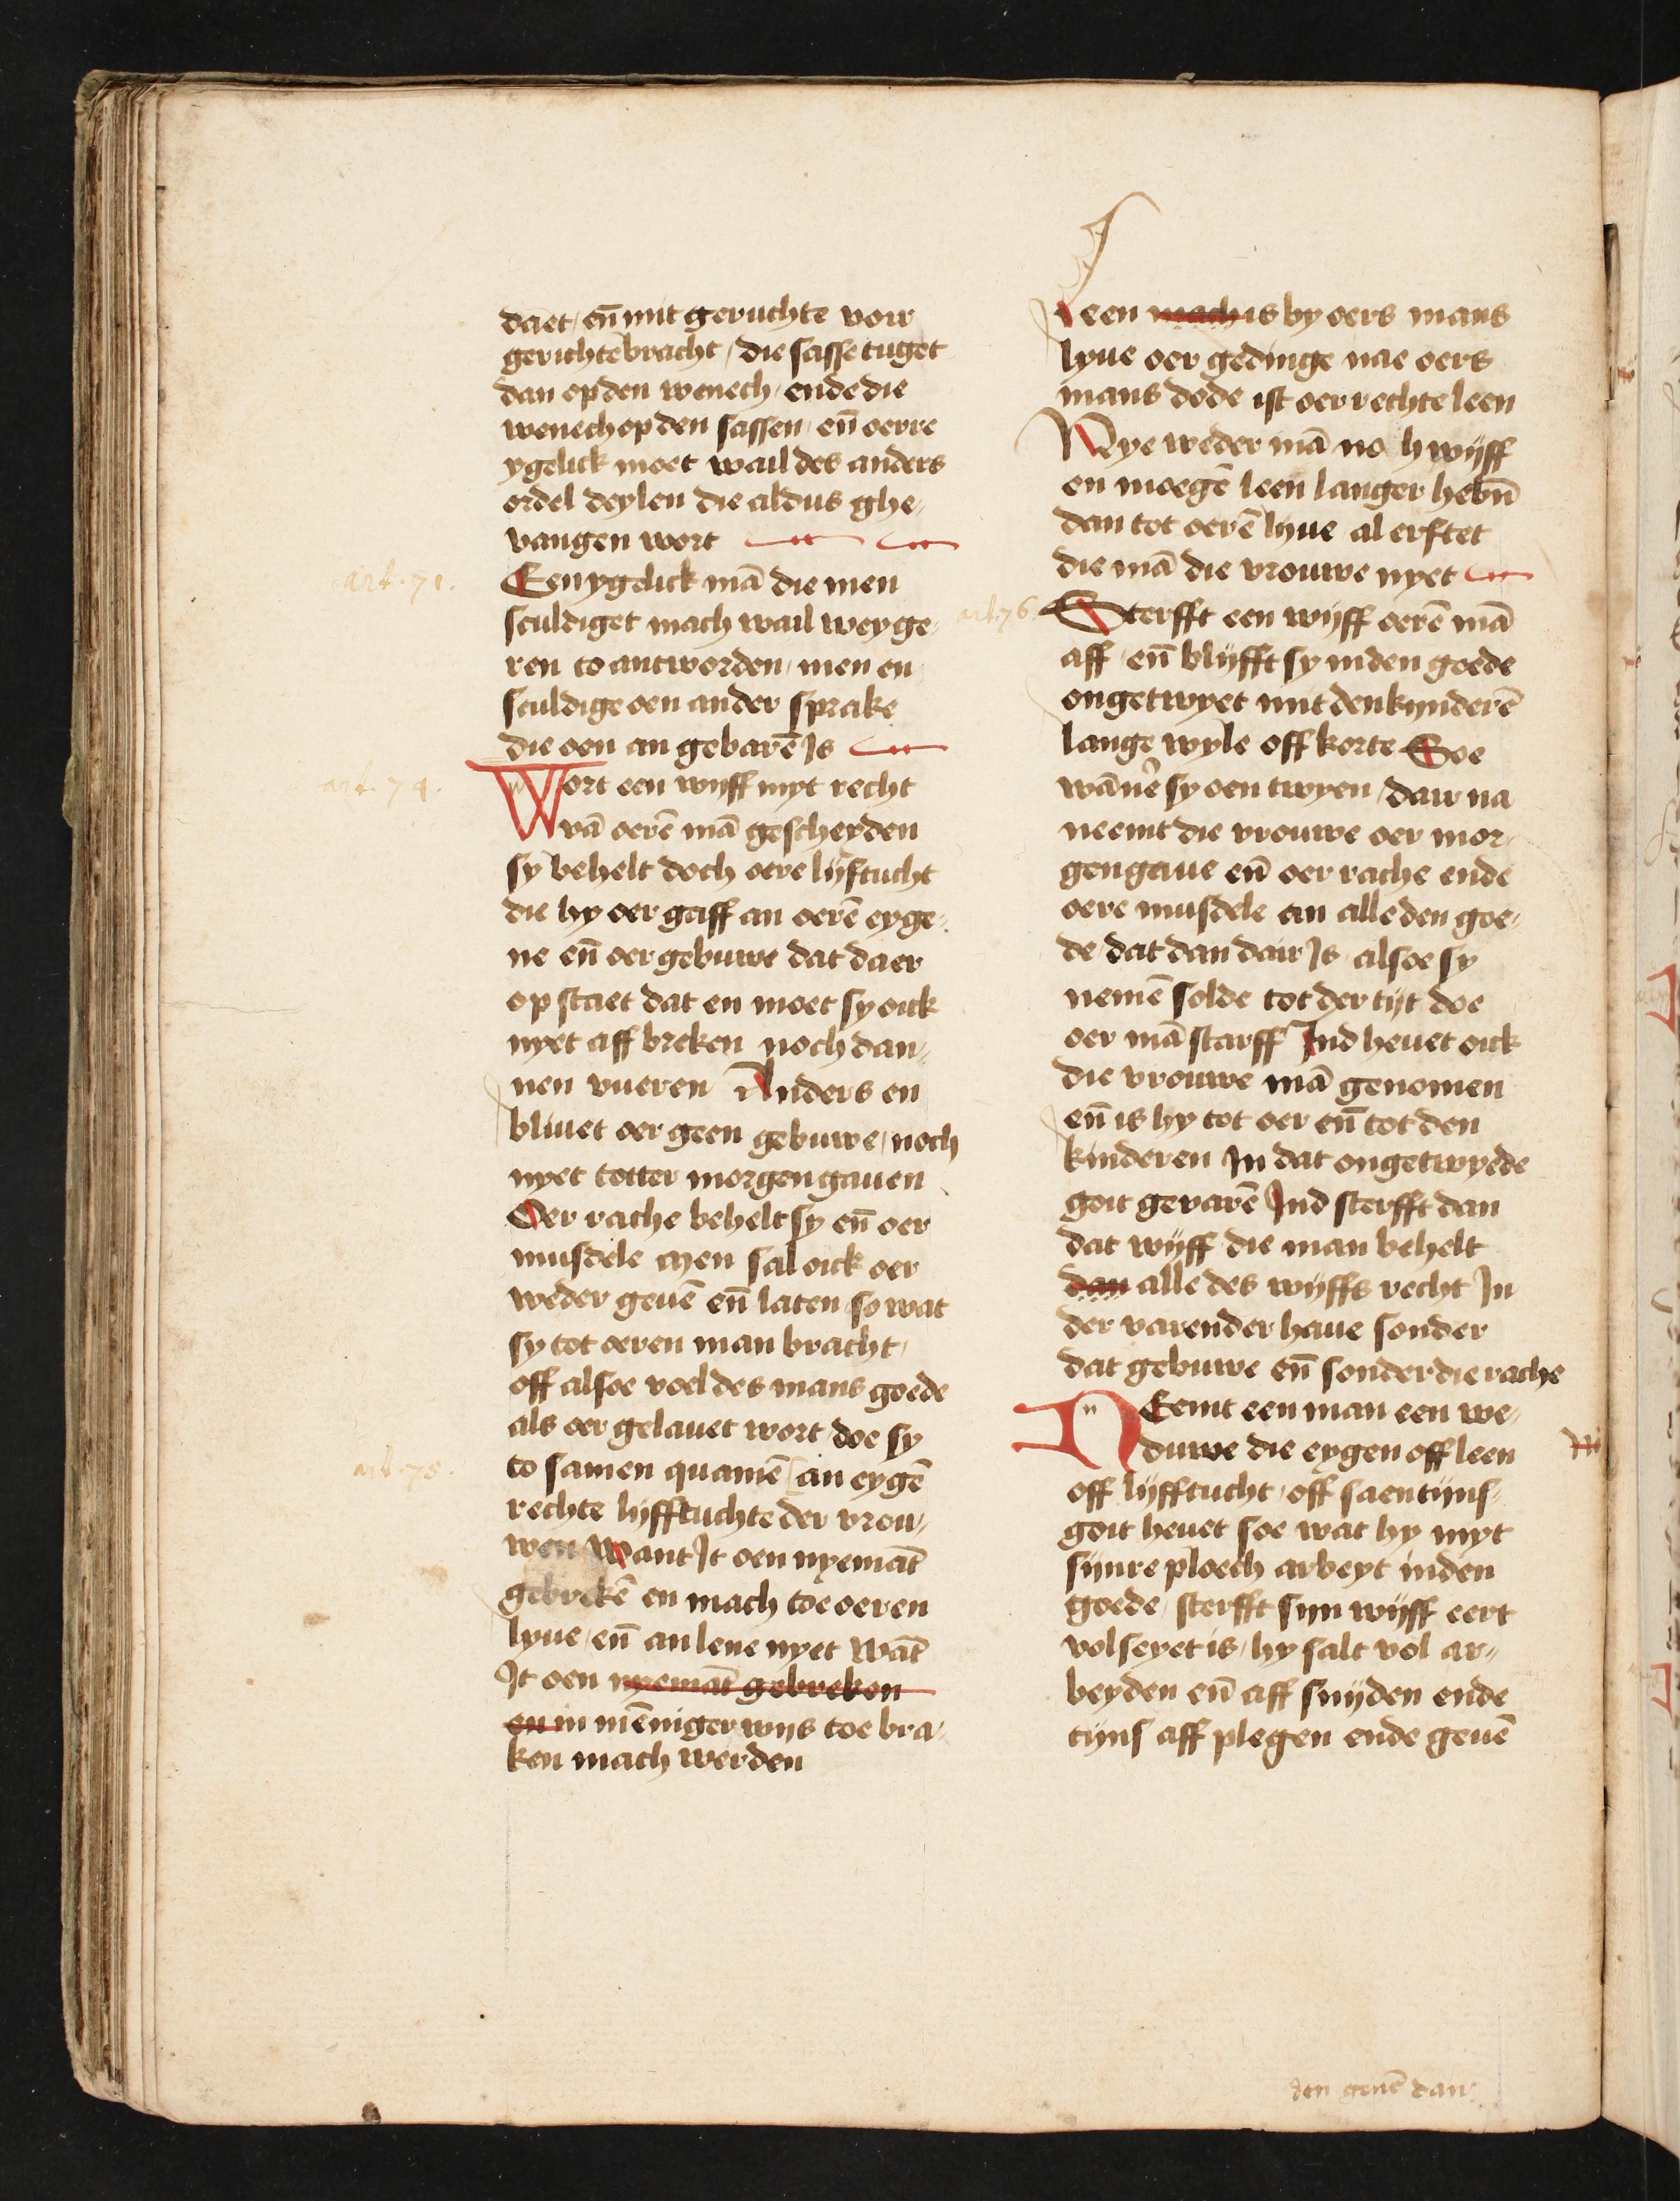 daet / en̄ mit geruchte voir
gerichte bracht / die sasse tuget
dan op den wenech / ende die
wenech op den sassen / en̄ oerre
ygelick moet wail des anders
ordel deylen die aldus ghe-
vangen wort
art. 71.
Een ygelick mā die men
sculdiget mach wail weyge-
ren to antworden / men en
sculdige oen ander sprake
die oen an gebarē Is
art. 74.
Wort een wijff myt recht
vā oerē mā gescheyden
sy behelt doch oere lijftucht
die hy oer gaff an oerē eyge-
ne en̄ oer gebuwe dat daer
op staet dat en moet sy oick
nyet aff breken noch dan-
nen vueren Anders en
bliuet oer geen gebuwe / noch
nyet totter morgengauen
Oer rache behelt sy en̄ oer
musdele Men sal oick oer
weder geuē en̄ laten so wat
sy tot oeren man bracht /
off alsoe voel des mans goede
als oer gelauet wort doe sy
art. 75.
to samen quamē / an eygē
rechte lijfftuchte der vrou-
wen Want It oen nyemāt
gebrekē en mach toe oeren
lyue / en̄ an lene nyet wāt
It oen nyemāt gebreken
en in mēniger wijs toe bra-
ken mach werden
Leen mach is by oers mans
lyue oer gedinge nae oers
mans dode ist oer rechte leen
Nye weder mā noch wijff
en moegē leen langer hebn̄
dan tot oerē lyue al erftet
die mā die vrouwe nyet
art. 76.
Sterfft een wijff oerē mā
aff / en̄ blijfft sy in den goede
ongetwyet mit den kynderē
lange wyle off korte Soe
wāne sy oen twyen / dair na
neemt die vrouwe oer mor-
gengaue en̄ oer rache ende
oere musdele an alle den goe-
de / dat dan dair Is alsoe sy
nemē solde tot der tijt doe
oer mā starff Ind heuet oick
die vrouwe mā genomen
en̄ is hy tot oer en̄ tot den
kinderen In dat ongetwyede
goit gevarē Ind sterfft dan
dat wijff die man behelt
dan alle des wijffs recht In
der varender haue sonder
dat gebuwe en̄ sonder die rache
NEemt een man een we-
duwe die eygen off leen
off lijfftucht / off saentijns-
goit heuet soe wat hy myt
sijnre ploech arbeyt inden
goede / sterfft sijn wijff eert
vol seyet is / hy salt vol ar-
beyden en̄ aff snijden ende
tijns aff plegen ende geuē
den geuē dair